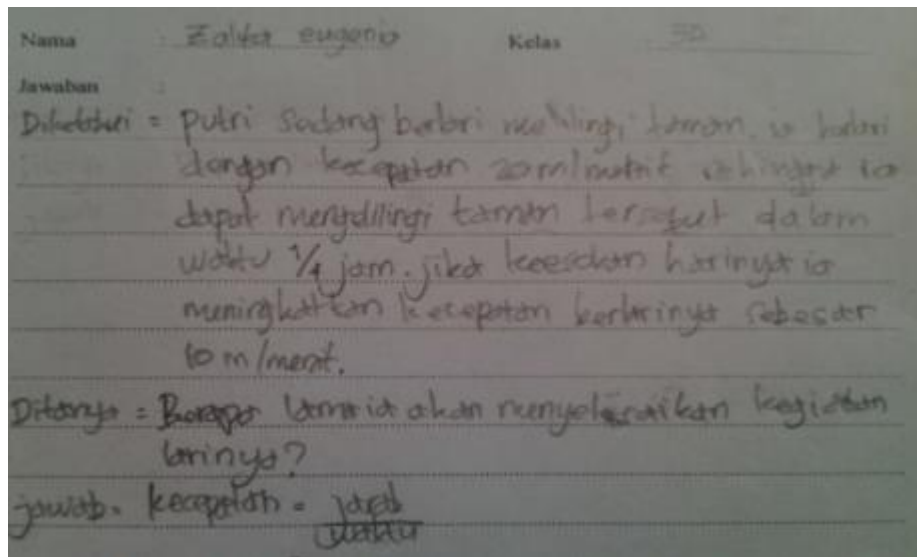 Nama : Zalfa eugenio Kelas : 3D
Jawaban :
Diketahui = putri sedang berlari melilingi taman. ia berlari
dengan kecepatan 20 m/menit sehingga ia
dapat mengelilingi taman tersebut dalam
waktu 1/4 jam. jika keesokan harinya ia
meningkatkan kecepatan berlarinya sebesar
10 m/menit.
Ditanya = Berapa lama ia akan menyelesaikan kegiatan
larinya?
jawab = kecepatan = jarak
waktu